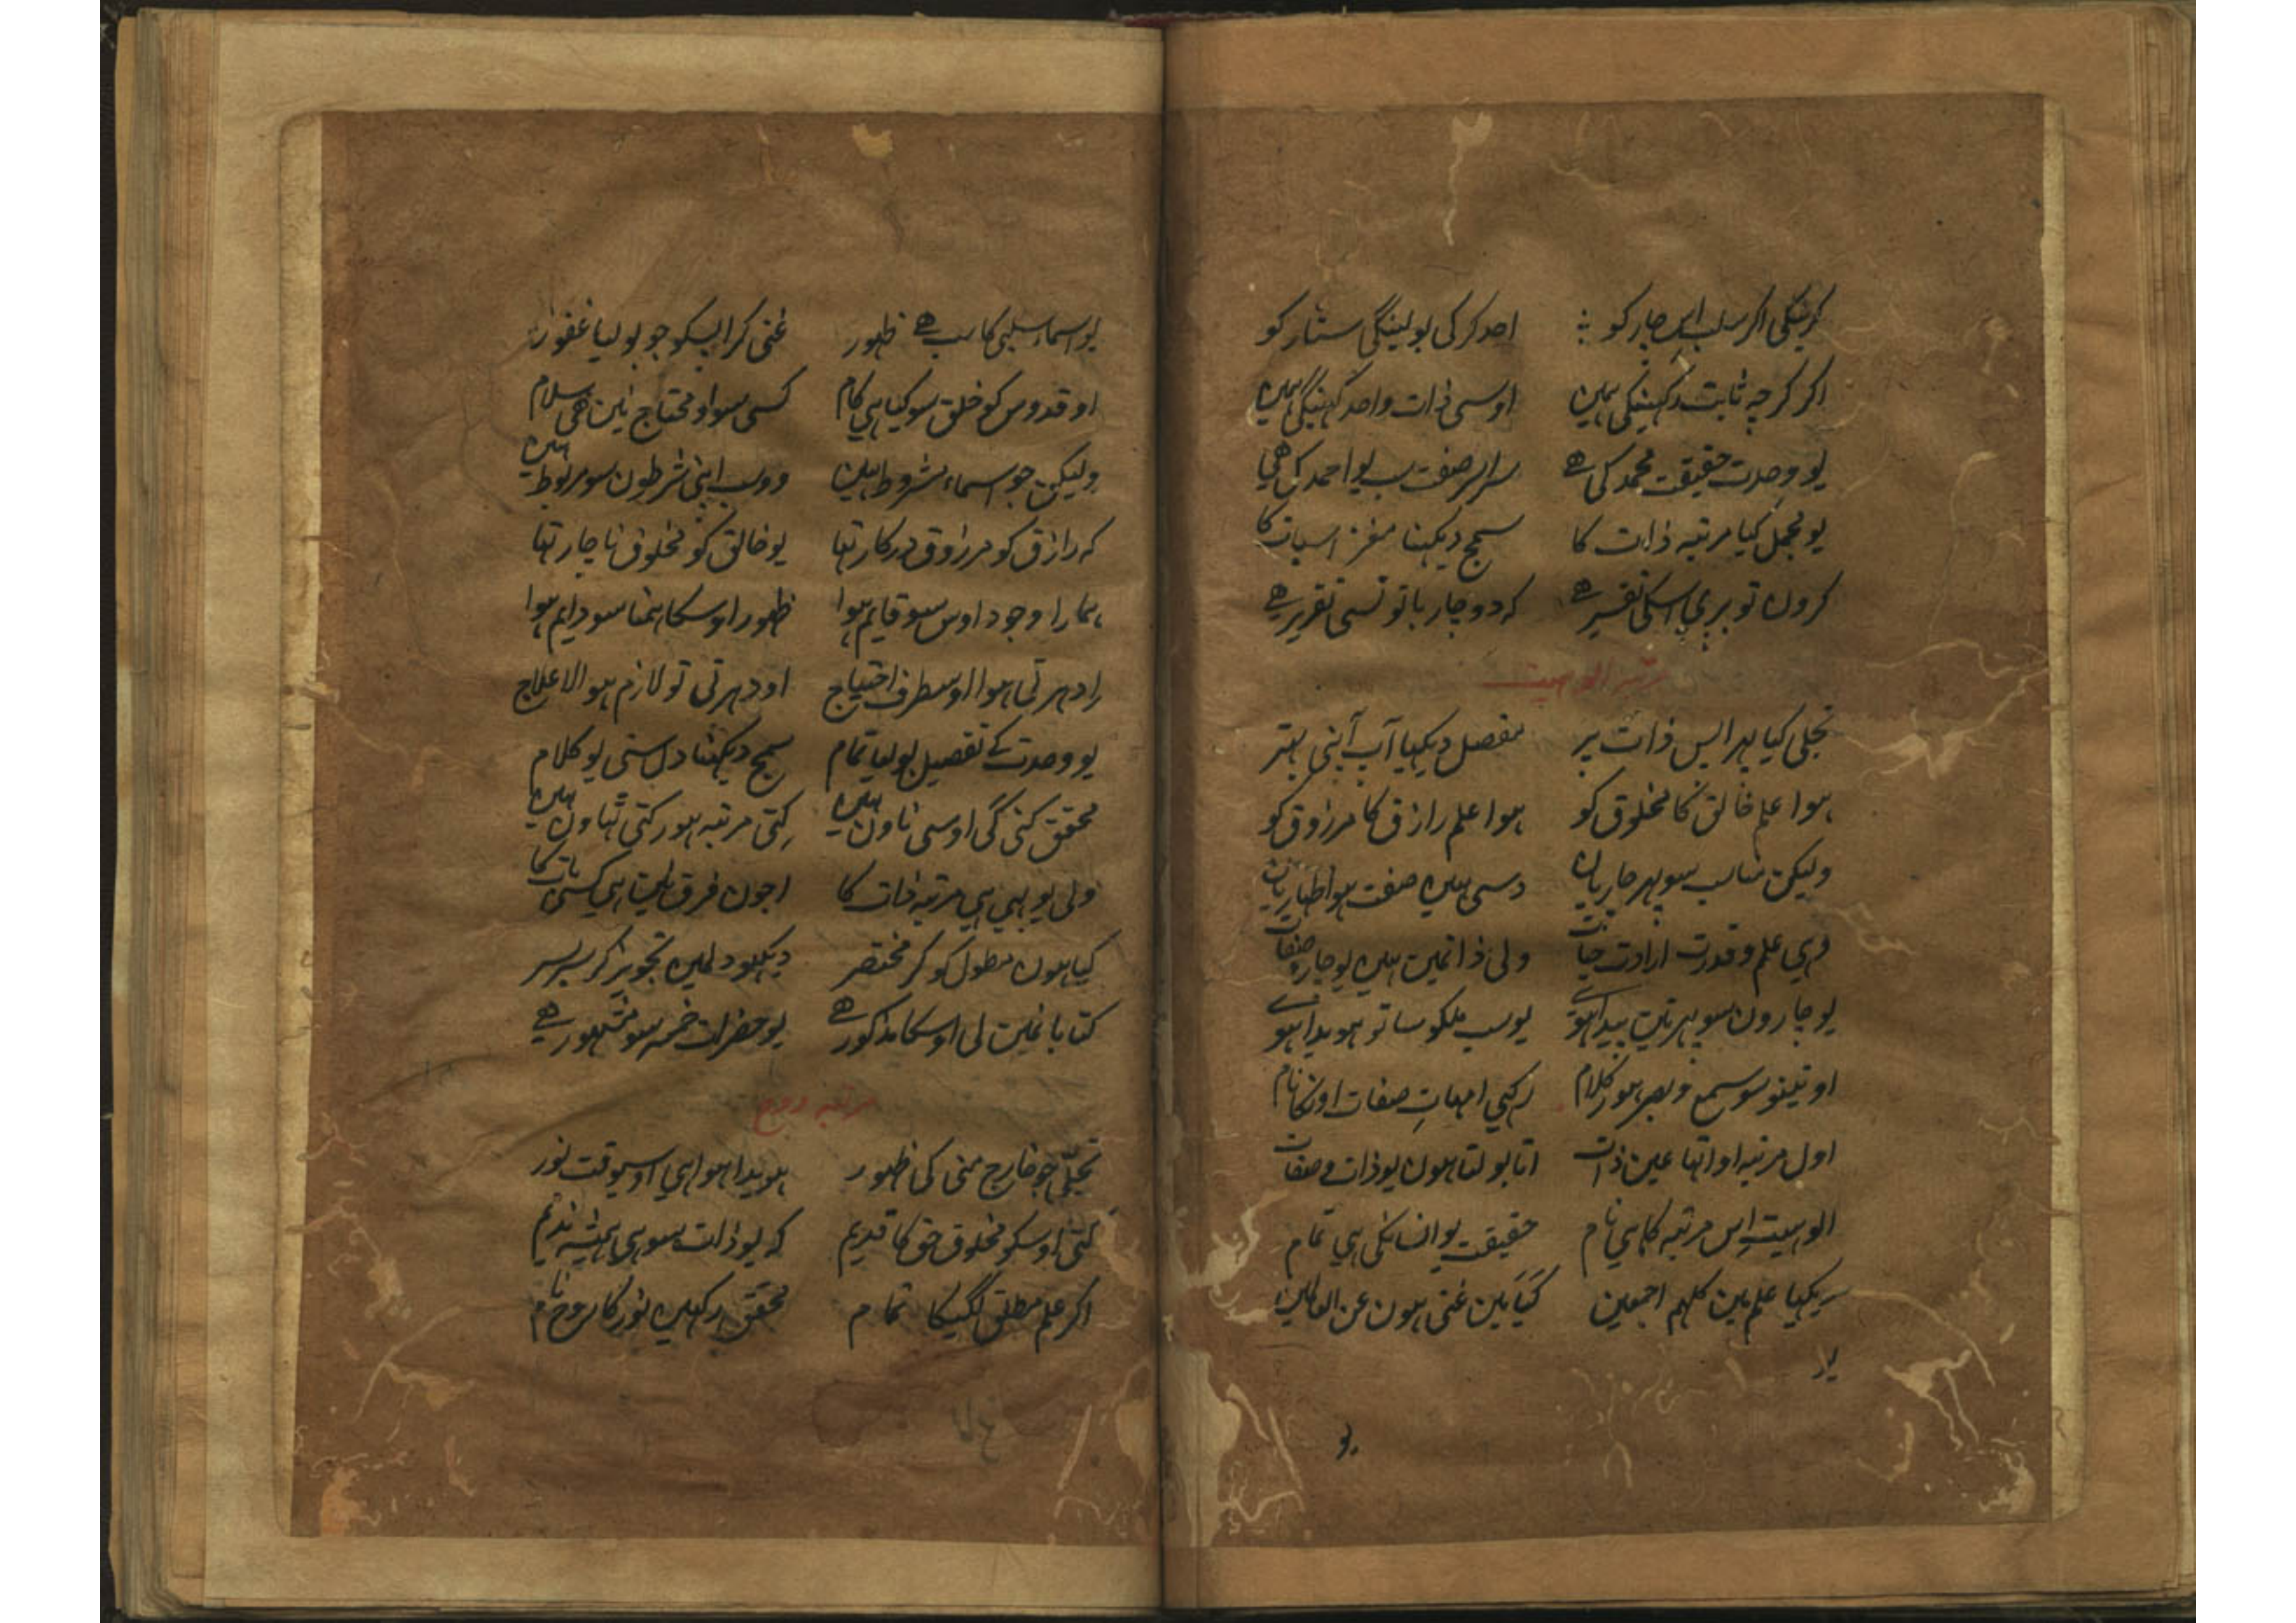 کرینگی اگر سلب اس چار کو احد کر کی بولینگی ستار کو
اگر کرچه ثابت کہینگی ہمیں اوسی ذات واحد کہینگی ہمیں
یو وحدت حقیقت محمد کی ہے سراسر صفت سب یو احمد کی ہی
یو مجمل کیا مرتبه ذات کا سمج دیکہنا مغز اسبات کا
کروں تو بری اسکی تفسیر ہے که دو چار باتو نسی تقریر ہے
مرتبه الوہیت
تجلی کیا پہر اپس ذات پر مفصل دیکہیا آپ اپنی بہتر
ہوا علم خالق کا مخلوق کو ہوا علم رازق کا مرزوق کو
ولیکن مناسب سو پہر چاریاں دسی ہیں صفت ہو اظہاریاں
وہی علم و قدرت ارادت حیات ولی ذاتمیں ہیں یو چار صفات
یو چاروں سو پہر تین پیدا ہوے یو سب ملکو ساتو ہویدا ہوے
او تینو سو سمع و بصر ہور کلام رکہی امہات صفات اونکا نام
اول مرتبه او اتہا عین ذات اتا بولتا ہوں یو ذات و صفات
الوہیت اس مرتبه کا ہی نام حقیقت یو انسانکی ہی تمام
سریکہیا علم میں کلہم اجمعین کیا میں غنی ہوں عن العالمین
یو
یو اسماء سلبی کا سب ہے ظہور غنی کر اپسکو جو بولیا غفور
او قدوس کو خلق سو کیا ہی کام کسی سو او محتاج نیں ہی سلام
ولیکن جو اسماء مشروط ہیں وو سب اپنی شرطوں سو مربوط ہیں
که رازق کو مرزوق درکار تہا یو خالق کو مخلوق ناچار تہا
ہمارا وجود اوس سو قایم ہوا ظہور اوسکا ہمنا سو دایم ہوا
ادہر تی ہوا اوسطرف احتیاج اودہر تی تو لازم ہوا لاعلاج
یو وحدت کے تفصیل بولیا تمام سمج دیکہنا دل ستی یو کلام
محقق کنی گی اوسی ناوں ہیں کتی مرتبه ہور کتی ٹہاوں ہیں
ولی یو بہی ہی مرتبه ذات کا اجوں فرق نیں ہی کسی بات کا
کیا ہوں مطول کو کر مختصر دیکہو دلمیں تجویز کر سربسر
کتابا نمیں لی اوسکا مذکور ہے یو حضرات خمسه سو مشہور ہے
مرتبه روح
تجلی جو خارج منی کی ظہور ہویدا ہوا ہی اوسیوقت نور
کتی اوسکو مخلوق حق کا قدیم که یو ذات سو ہی ہمیشه ندیم
اگر علم مطلق لگیگا تمام محقق رکہیں نور کا روح نام